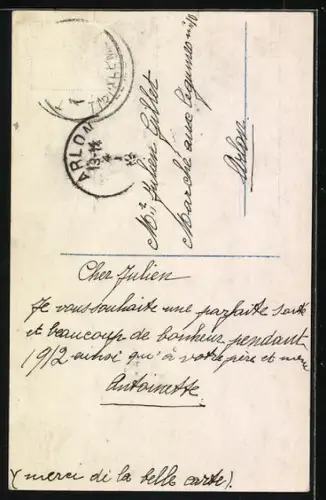 ARLON
13-14
1
Mr Julien Gillet
Marché aux légumes
Arlon
Cher Julien
Je vous souhaite une parfaite santé
et beaucoup de bonheur pendant
1912 ainsi qu'à votre père et mère
Antoinette
(merci de la belle carte).